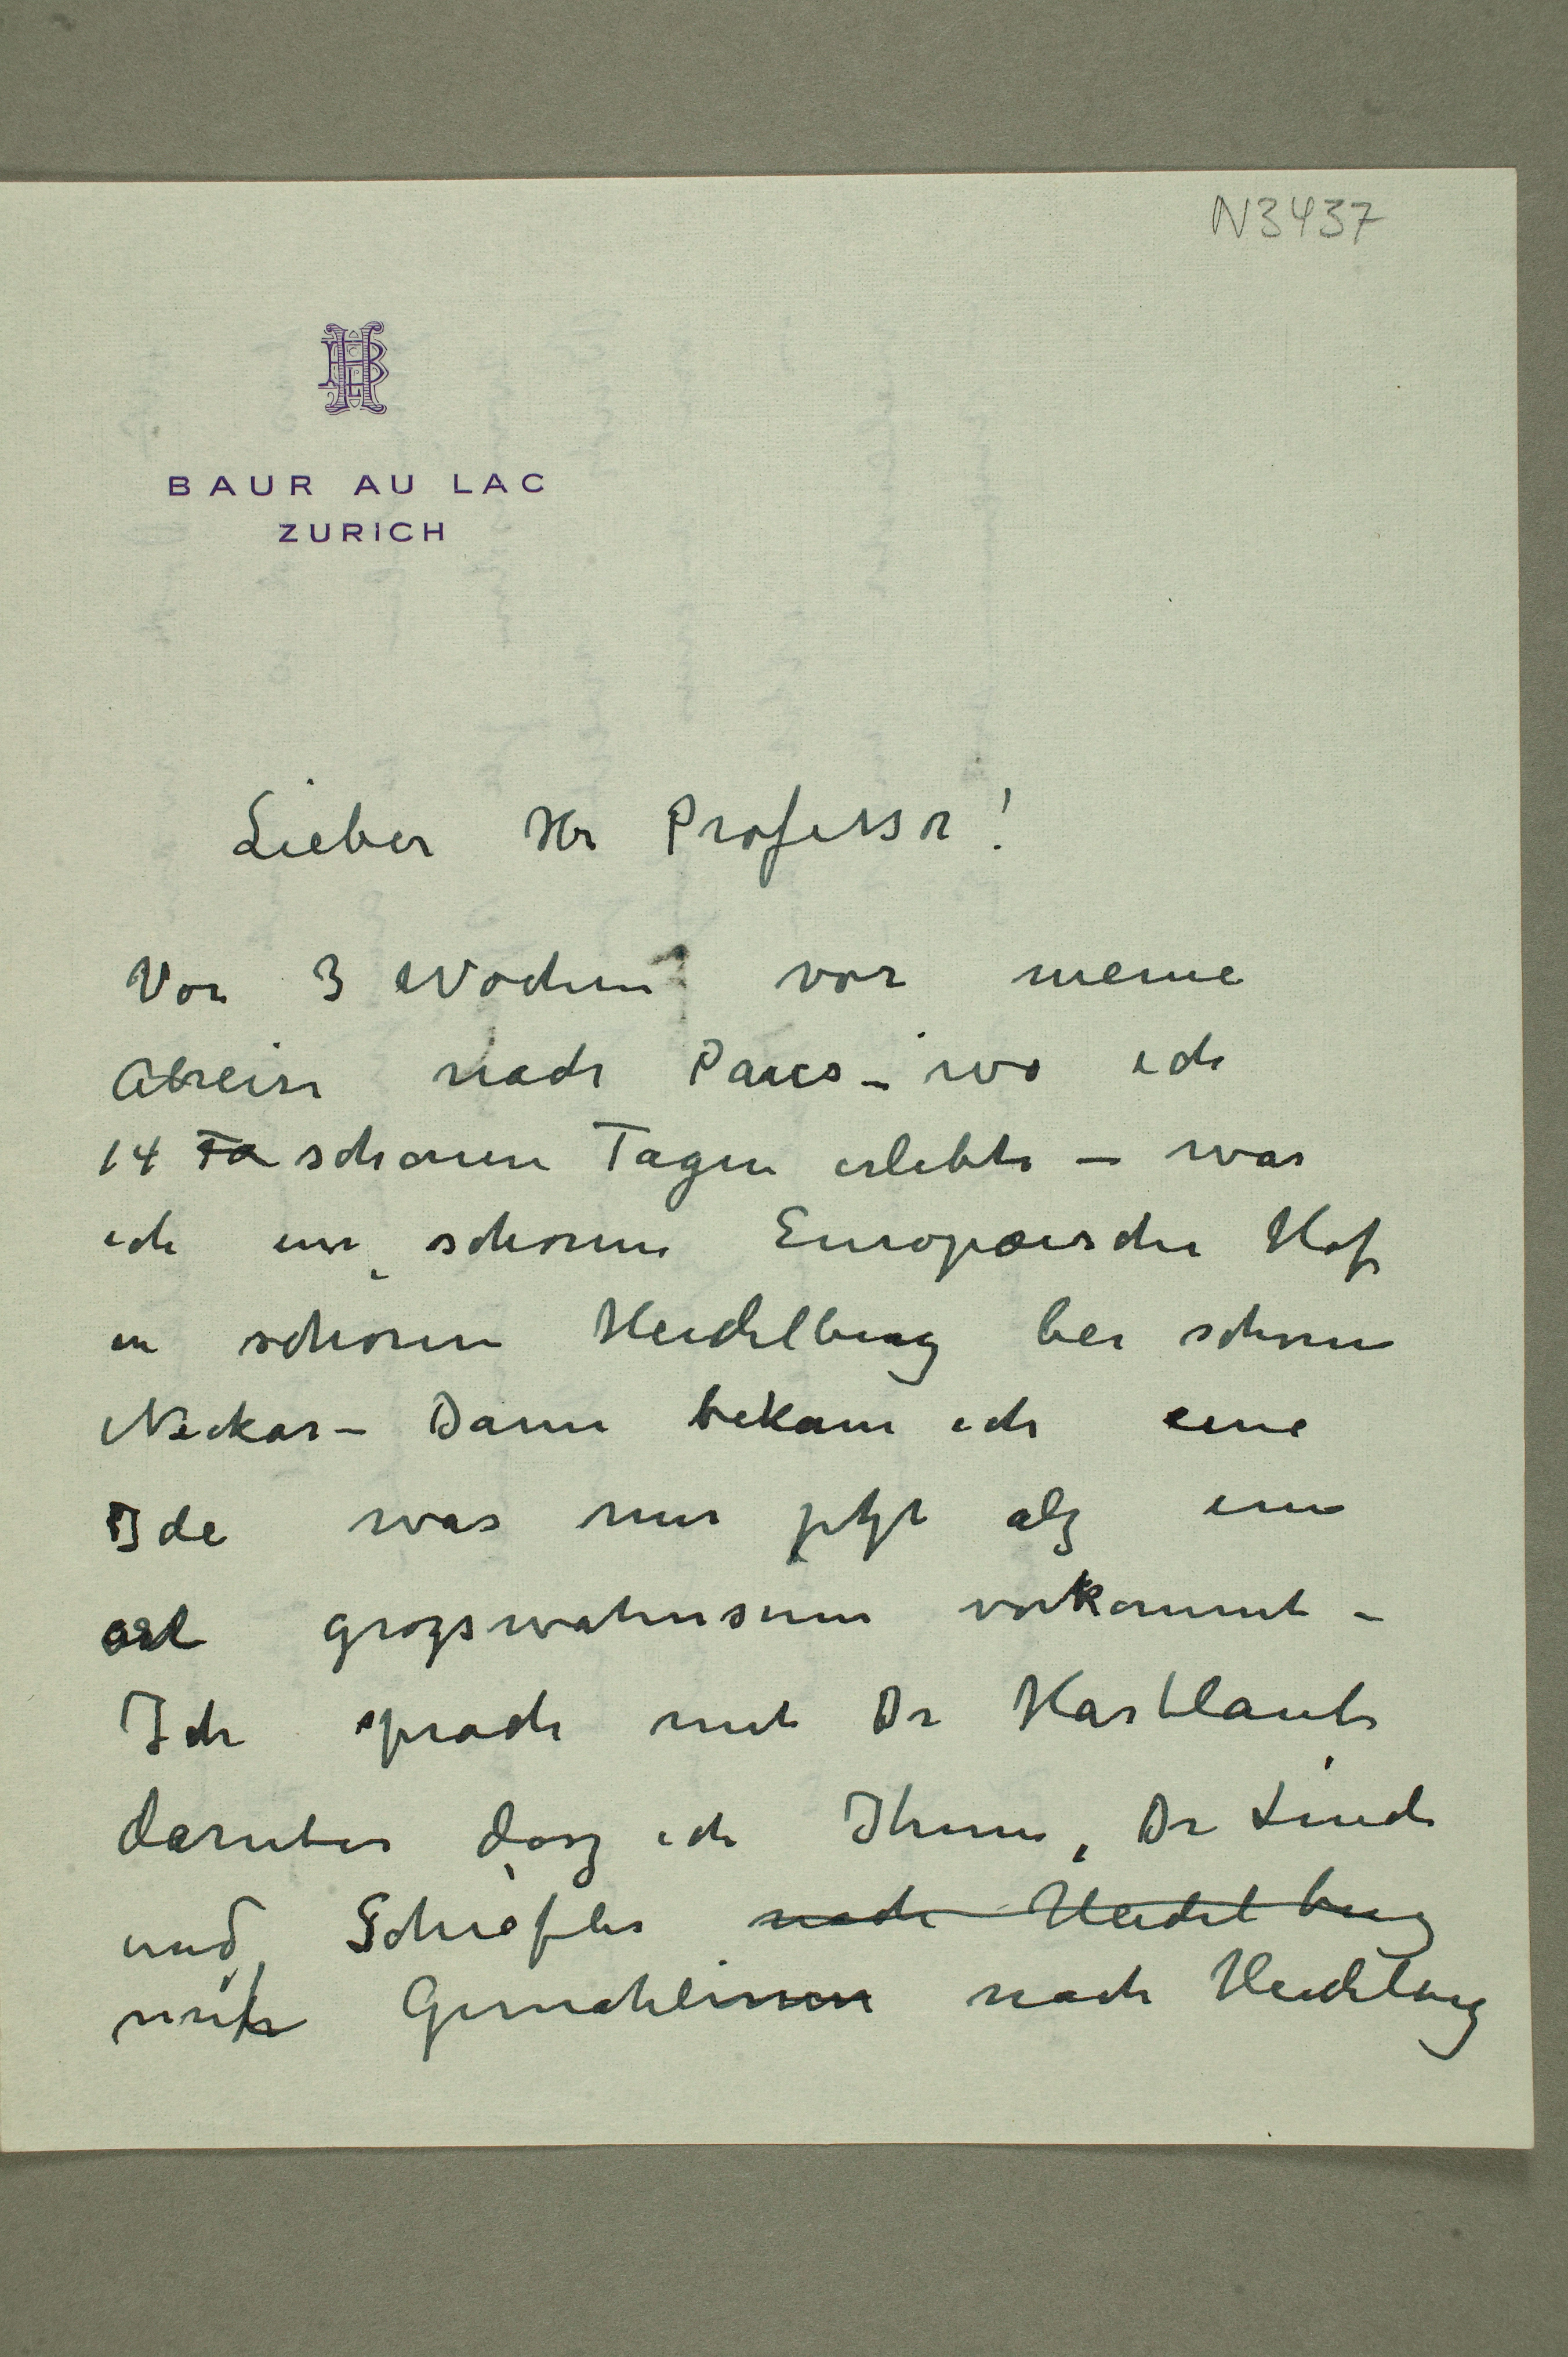 N3437
BAUR AU LAC
ZURICH
Lieber Hr Professor!
Vor 3 Wochen vor meine
Abreise nach Paris – wo ich
14 Ta schonen Tagen erlebte – war
ich im schonen Europæischer Hof
in schonen Heidelberg bei schonen
Neckar – Dann bekam ich eine
Ide was mir jetzt alz eine
art grozswahnsinn vorkommt –
Ich sprach mit Dr Hartlaub
daruber dasz ich Ihnen, Dr Linde
und Schiefler nach Heidelberg
mit Gemahlinnen nach Heidelberg